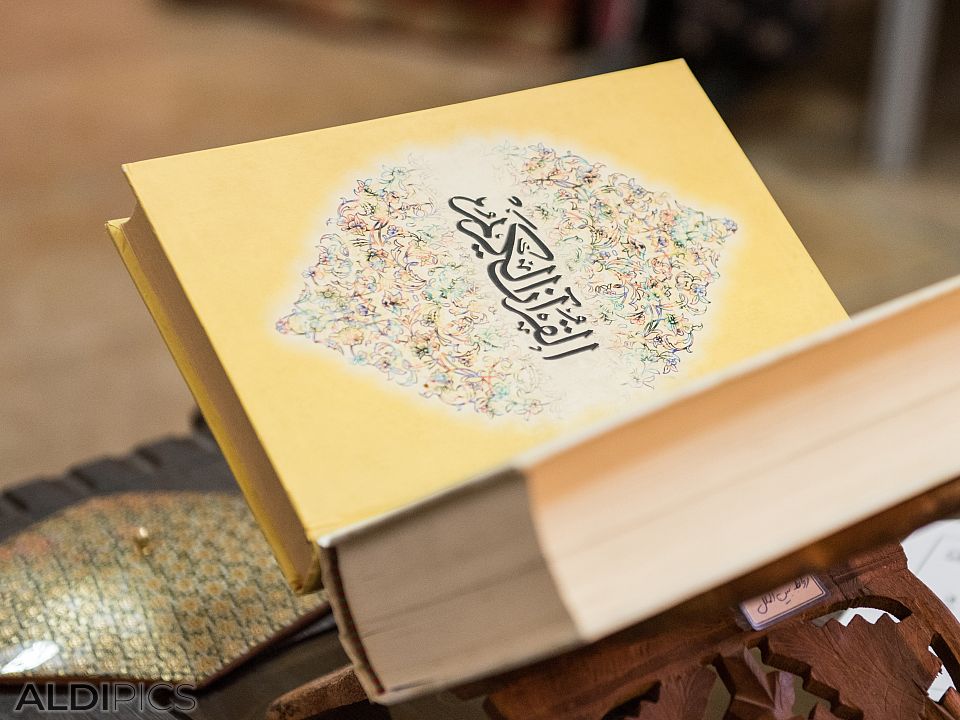 القرآن الكريم
ALDIPICS